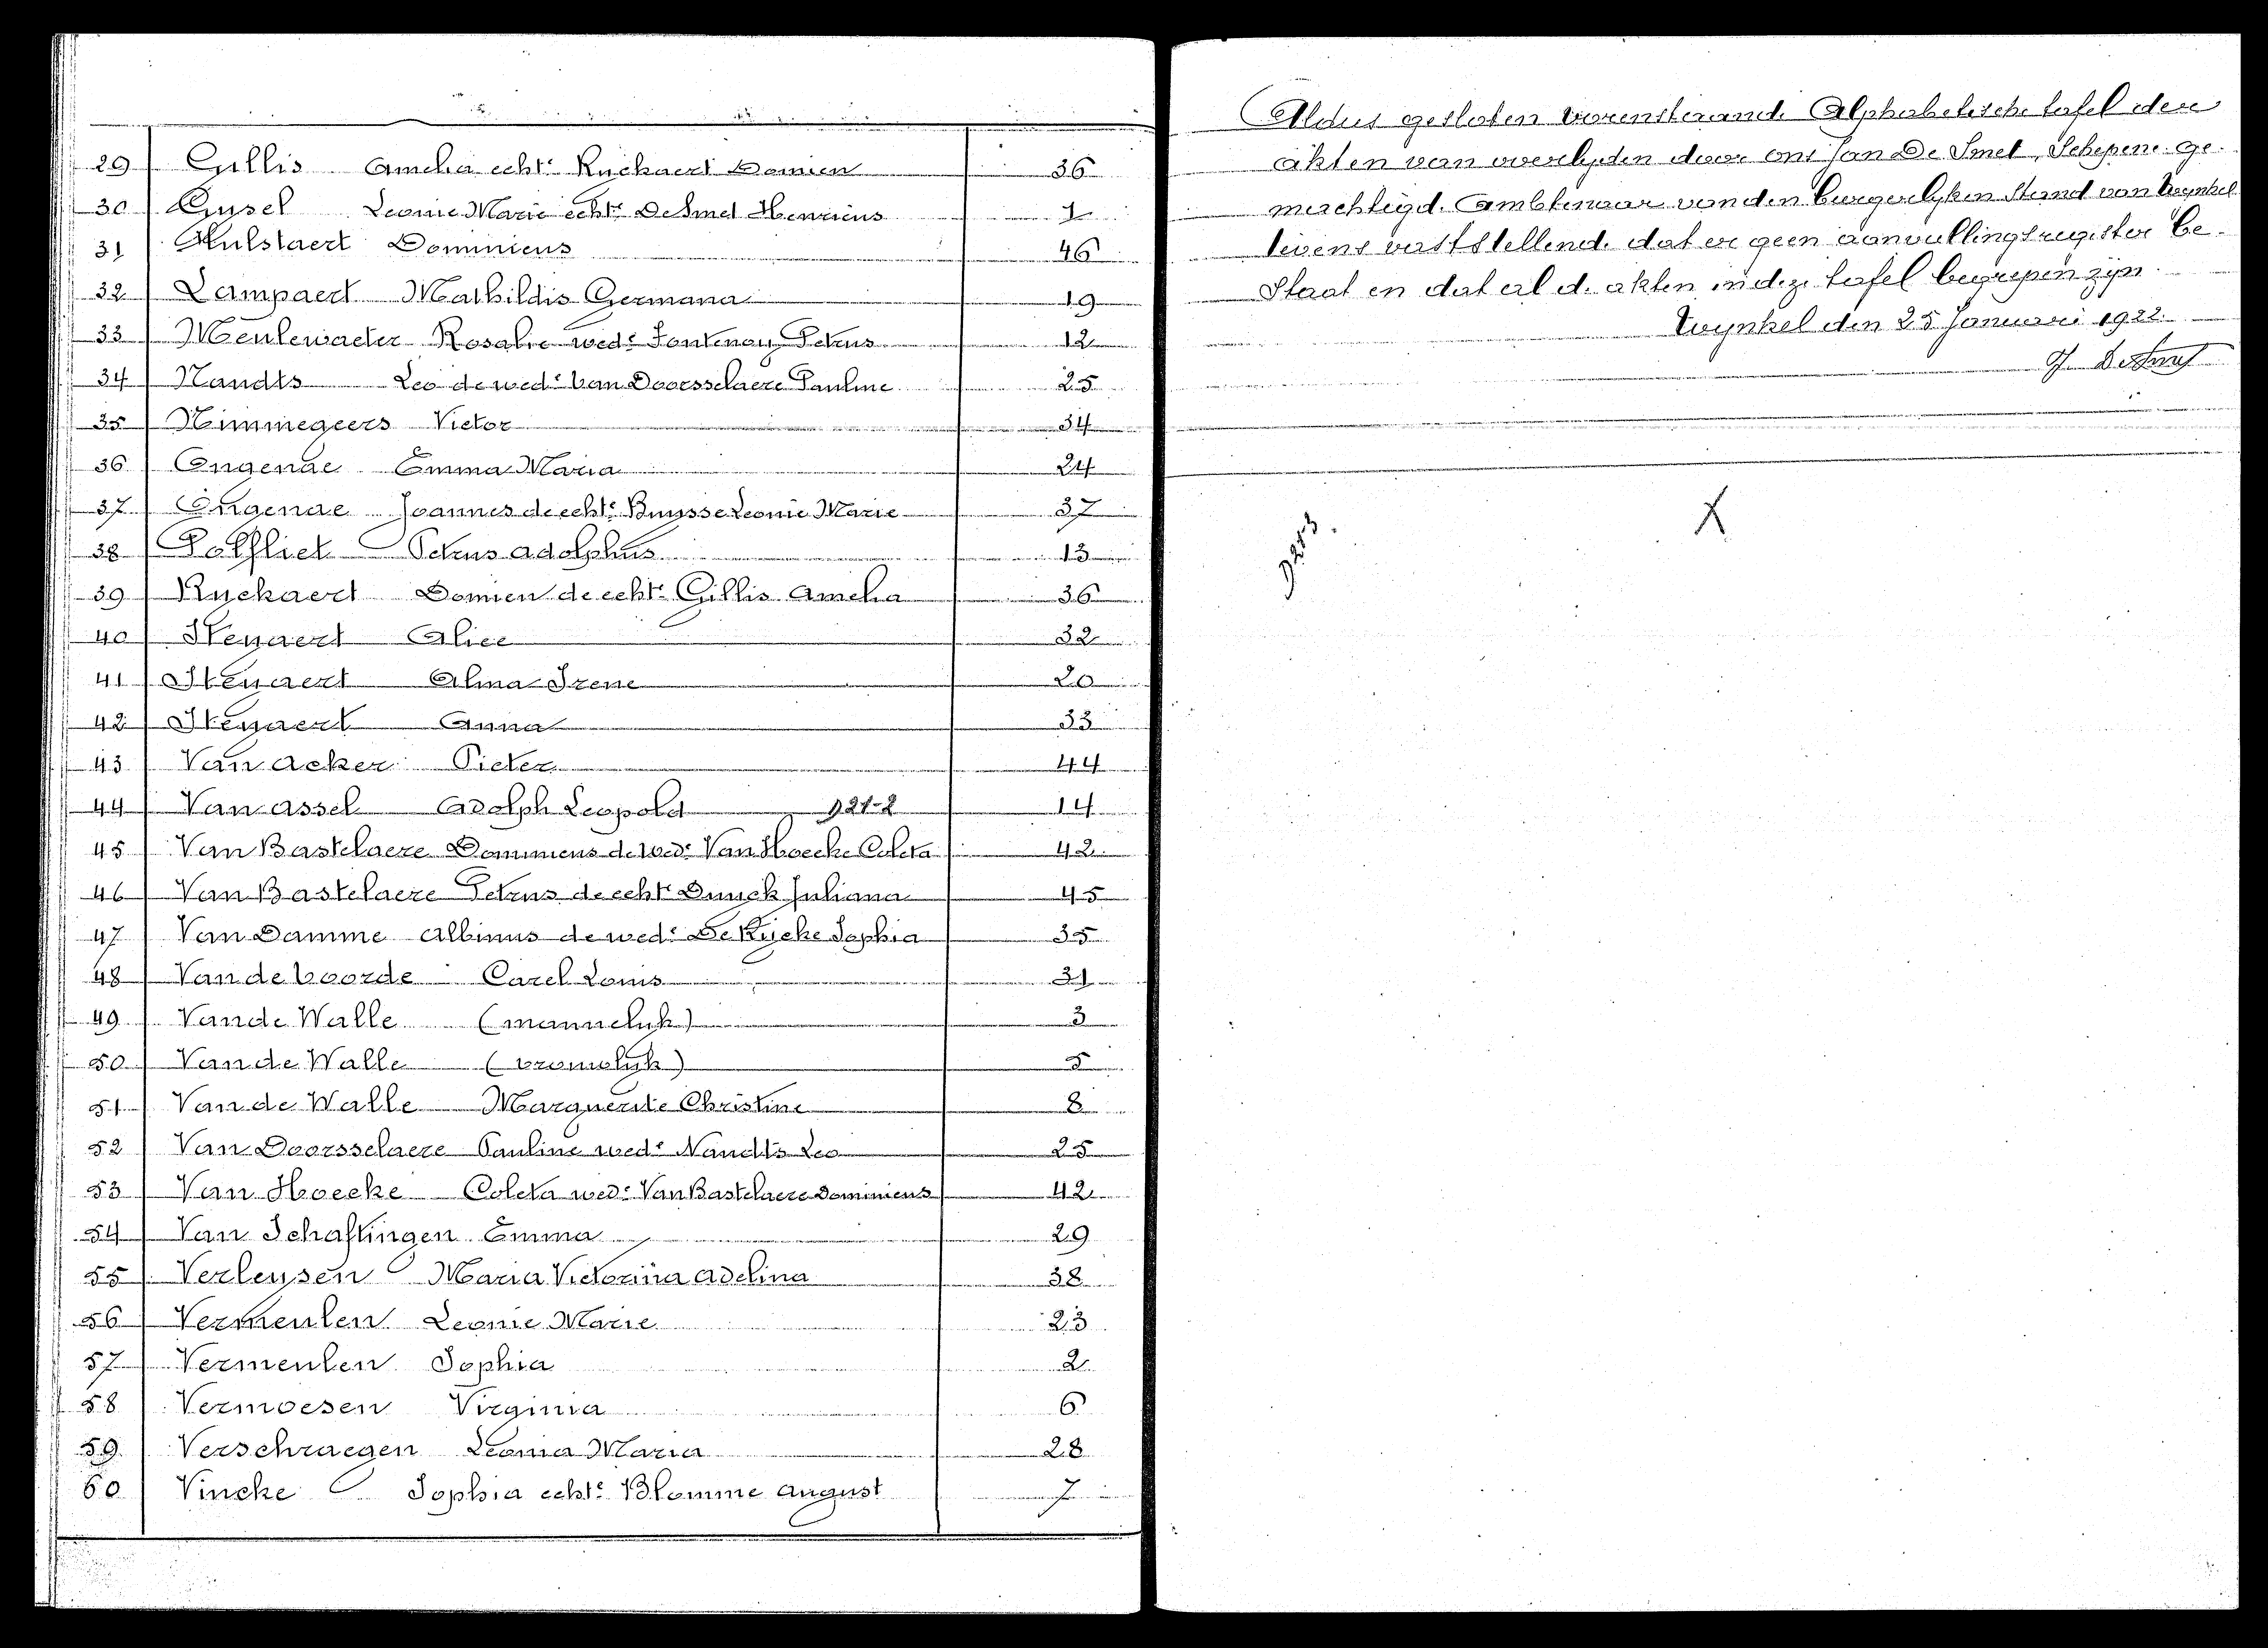 29 Gillis Amelia echt.e Ryckaert Domien 36
30 Gysel Leonie Marie echt.e De Smet Henricus 1
31 Hulstaert Dominicus 46
32 Lampaert Mathildis Germana 19
33 Meulewaeter Rosalie wed.e Fontenoy Petrus 12
34 Nandts Leo de wed.e Van Doorsselaere Pauline 25
35 Nimmegeers Victor 34
36 Ongenae Emma Maria 24
37 Ongenae Joannes de echt.e Buysse Leonie Marie 37
38 Potvliet Petrus Adolphus 13
39 Ryckaert Domien de echt.e Gillis Amelia 36
40 Steyaert Alice 32
41 Steyaert Alma Irene 20
42 Steyaert Anna 33
43 Van Acker Pieter 44
44 Van Assel Adolph Leopold 921-2 14
45 Van Bastelaere Dominicus de wed.e Van Hoecke Coleta 42
46 Van Bastelaere Petrus de echt.e Buyck Juliana 45
47 Van Damme Albinus de wed.e De Rycke Sophia 35
48 Van de Voorde Carel Louis 31
49 Van de Walle (mannelyk) 3
50 Van de Walle (vrouwelyk) 5
51 Van de Walle Marguerite Christine 8
52 Van Doorsselaere Pauline wed.e Nandts Leo 25
53 Van Hoecke Coleta wed.e Van Bastelaere Dominicus 42
54 Van Schaftingen Emma 29
55 Verleysen Maria Victorina Adelina 38
56 Vermeulen Leonie Marie 23
57 Vermeulen Sophia 2
58 Vermoesen Virginia 6
59 Verschraegen Leonia Maria 28
60 Vincke Sophia echt.e Blomme August 7
Aldus gesloten vorenstaande Alphabetische tafel der
akten van overlyden door ons Jan De Smet, Schepene ge-
machtigd. Ambtenaar van den burgerlyken Stand van Wynkel
tevens vaststellende dat er geen aanvullingsregister be-
staat en dat al de akten in deze tafel begrepen zyn.
Wynkel den 25 Januari 1922.
J. De Smet
X